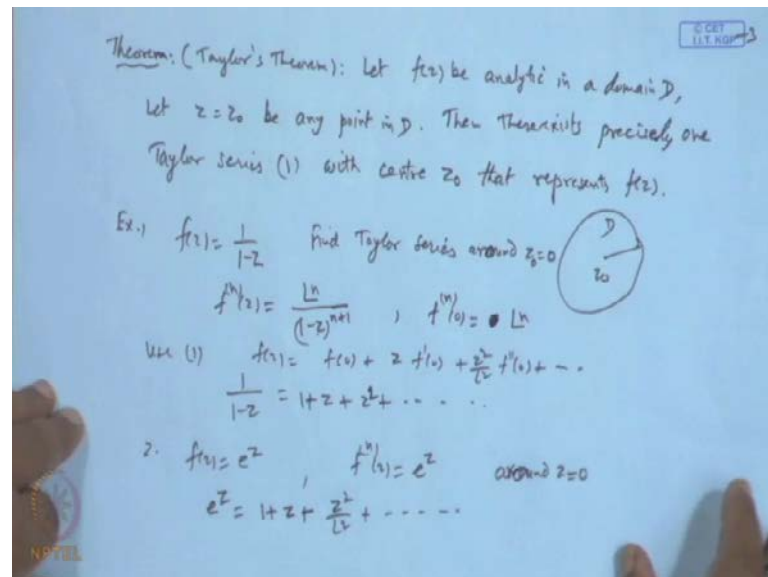 © CET
I.I.T. KGP
Theorem: (Taylor's Theorem): Let f(z) be analytic in a domain D,
Let z=z₀ be any point in D. Then There exists precisely one
Taylor series (1) with centre z₀ that represents f(z).
Ex.1 f(z) = 1/(1-z) Find Taylor series around z₀=0
D
z₀
f⁽ⁿ⁾(z) = ∟n/(1-z)ⁿ⁺¹ , f⁽ⁿ⁾(0) = ∟n
Use (1) f(z) = f(0) + z f'(0) + z²/∟2 f''(0) + - - ·
1/(1-z) = 1+z+z²+ - - - - -
2. f(z) = e^z , f⁽ⁿ⁾(z) = e^z around z=0
e^z = 1+z+ z²/∟2 + - - - - -
NPTEL